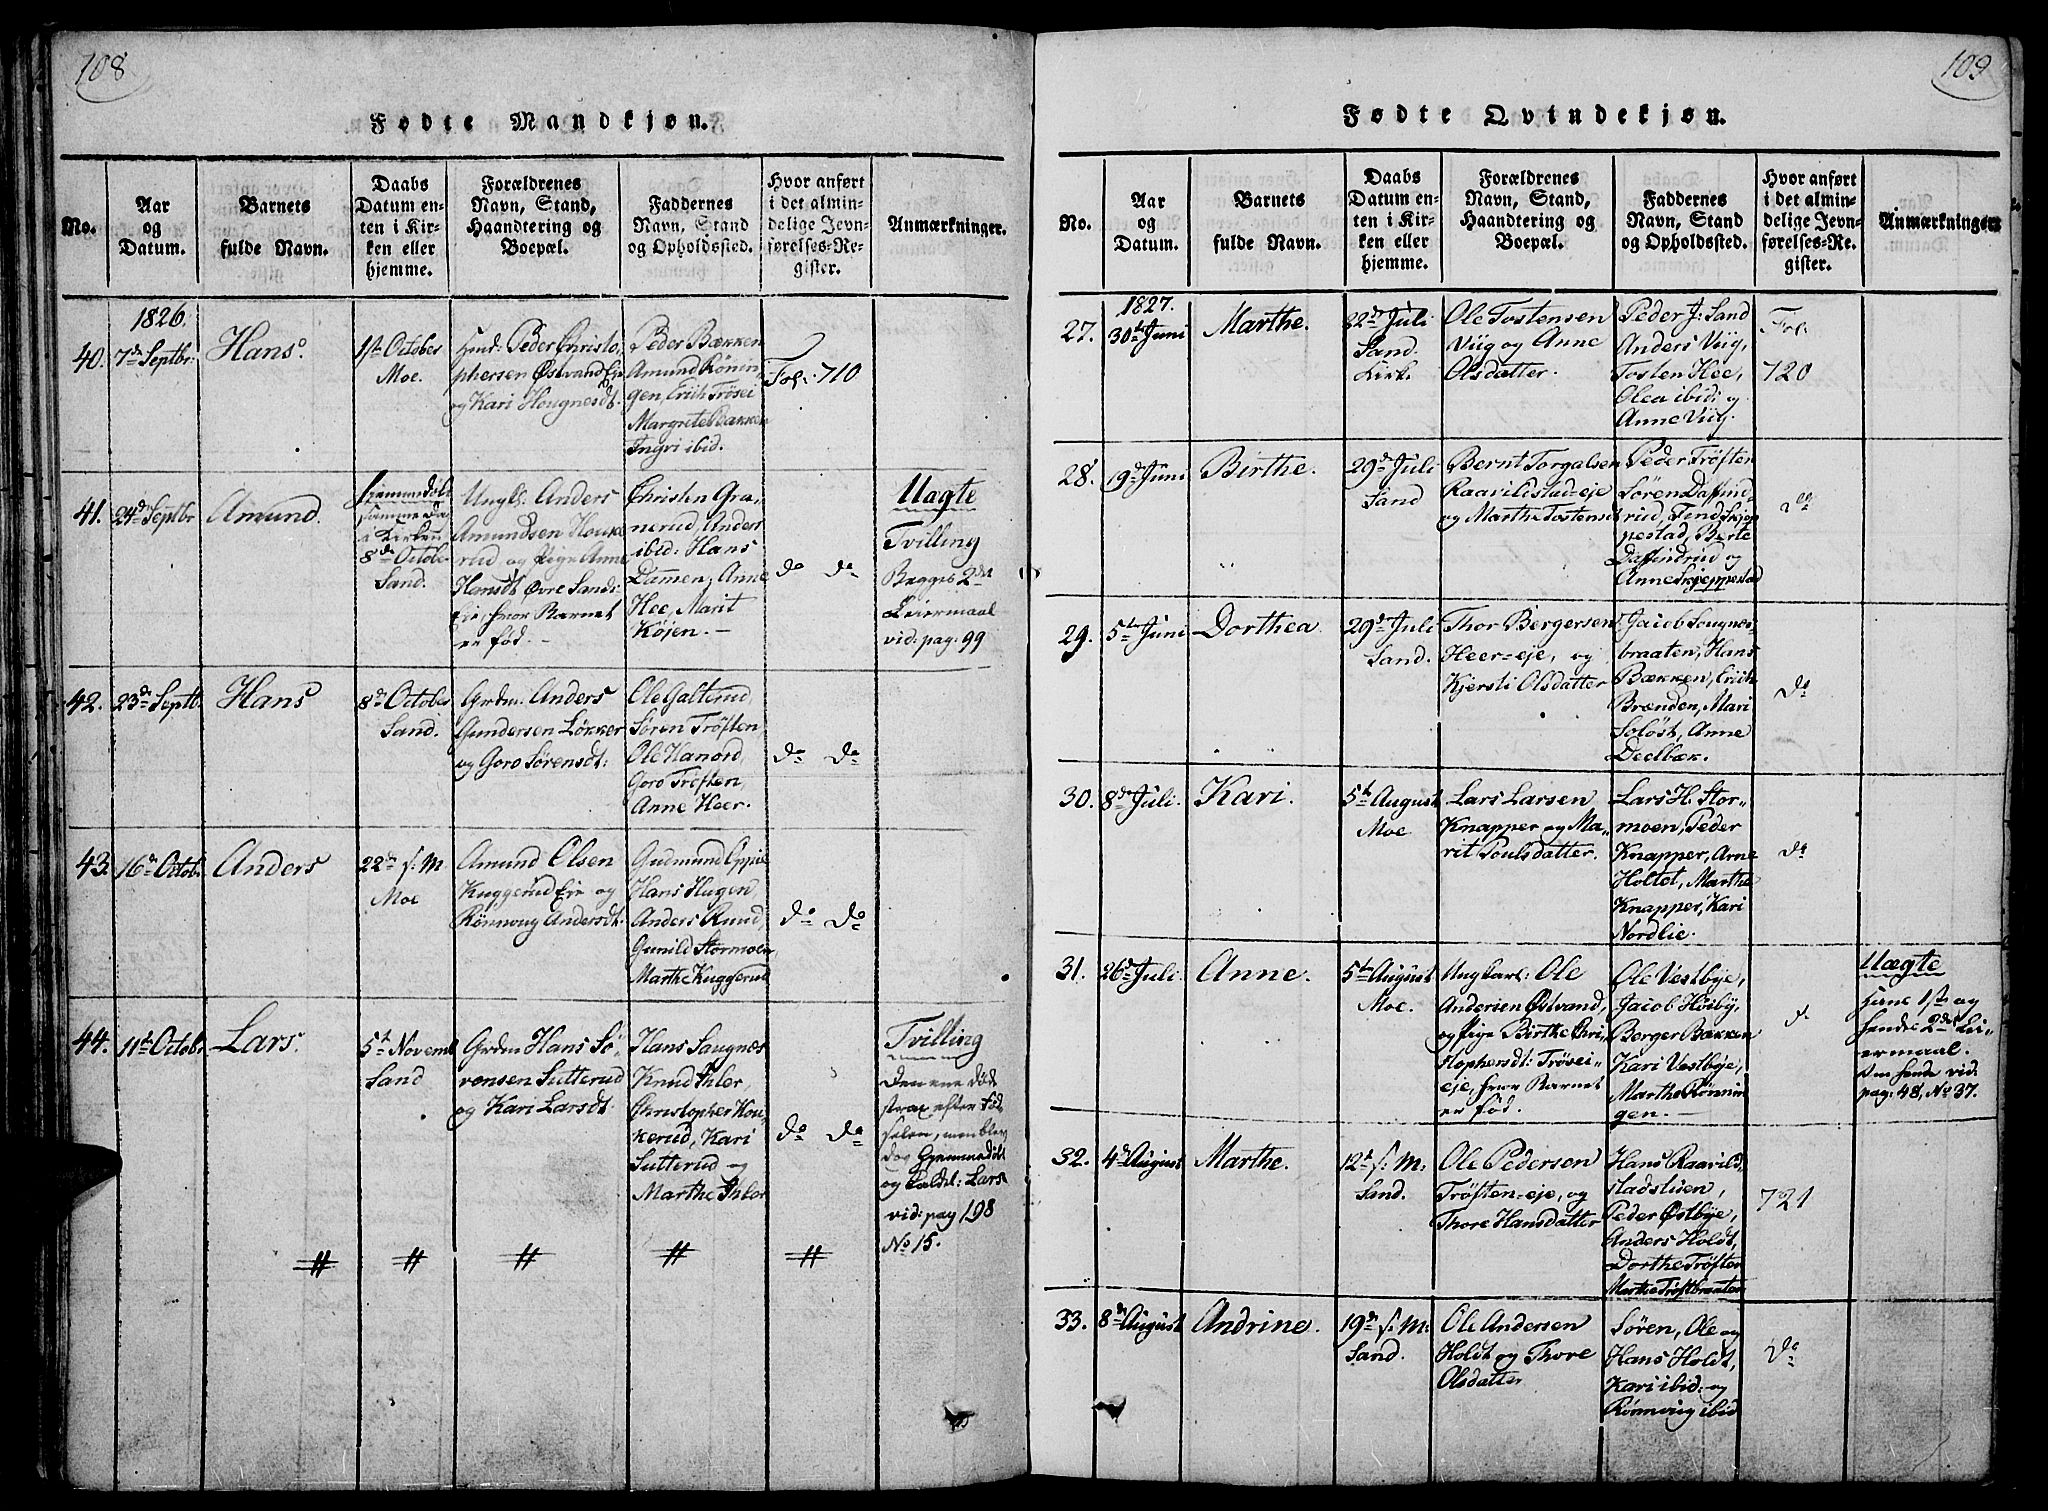 108
Fødte Mandkjøn.
No.
Aar
og
Datum.
Barnets
fulde Navn.
Daabs
Datum en-
ten i Kir-
ken eller
hjemme.
Forældrenes
Navn, Stand,
Haandtering og
Boepæl.
Faddernes
Navn, Stand
og Opholdssted.
Hvor anført
i det almin-
delige Jevn-
førelses-Re-
gister.
Anmærkninger.
1826.
40.
7de Septbr:
Hans.
1ste October
Moe.
Huusd: Peder Christo,
phersen Østvand Eje
og Kari Hougnesdt.
Peder Bækken
Amund Rönin-
gen, Erich Trösei
Margrete Bakken
Ingri ibid.
Fol: 710
41.
24de Septbr
Amund.
Hiemmedöbt
samme Da
i Kirken
8de Octobr
Sand.
Ungk. Anders
Amundsen Houke
rud og Pige Anne
Hansdt Övre Sand-
Eje, hvor Barnet
er fød. -
Christen Gra-
nerud, Anders
ibid: Hans
Dammen, Anne
Hee, Marit
Köjen. -
do do
Uægte
Tvilling
Begges 2det
Leiermaal
vid: pag: 99
42.
23de Septb.
Hans
8de October
Sand.
Grdm. Anders
Gundersen Løkker
og Goro Sørensdt:
Ole Galterud,
Søren Tröften,
Ole Hanord,
Goro Tröften,
Anne Heer.
do do
43.
16de Octobr
Anders
22de s. M
Moe
Amund Olsen
Kuggerud Eje og
Rønnoug Andersdt.
Gudmund Oppi
Hans Hugen
Anders Ruud,
Gunild Stormoen
Marthe Kuggerud
do do
44.
11te Octobr
Lars.
5te Novemb
Sand
Grdm Hans Sö-
rensen Sutterud
og Kari Larsdt.
Hans Saugnæs
Knud Ihler,
Christopher Hou-
kerud, Kari
Sutterud og
Marthe Ihler
do do
Tvilling
Den ene död
strax efter Föd
selen, men blev
dog hjemmedöbt
og kaldet: Lars
vid: pag 198
No 15.
109
Fødte Qvindekjøn.
No.
Aar
og
Datum.
Barnets
fulde Navn.
Daabs
Datum en-
ten i Kir-
ken eller
hjemme.
Forældrenes
Navn, Stand,
Haandtering og
Boepæl.
Faddernes
Navn, Stand
og Opholdssted.
Hvor anført
i det almin-
delige Jevn-
førelses-Re-
gister.
Anmærkninger
1827.
27.
30te Juni
Marthe.
22de Juli
Sand.
Kirk.
Ole Tostensen
Viig og Anne
Olsdatter.
Peder J: Sand
Anders Viig,
Tosten Hee,
Olea ibid: og
Anne Viig.
Fol:
720
28.
9de Juni
Birthe.
29de Juli
Sand
Bernt Torgalsen
Raavilistad-eje
og Marthe Tostensd
Peder Tröften
Sören Daffind-
rud, Fend Skjop
pestad, Berte
Daffindrud og
Anne Skjeppestad
do
29.
5te Juni
Dorthea.
29de Juli
Sand.
Thor Bergersen
Heer-eje, og
Kjersti Olsdatter
Jacob Sougnes-
braaten, Hans
Bækken, Erich
Brænden, Mari
Soløst, Anne
Deelbæk.
do
30.
8de Juli.
Kari.
5te August
Moe.
Lars Larsen
Knapper og Ma-
rit Poulsdatter.
Lars H. Stor-
moen, Peder
Knapper, Arne
Holtet, Marthe
Knapper, Kari
Nordlie.
do
31.
26de Juli.
Anne.
5te August
Moe.
Ungkarl: Ole
Andersen Östvand,
og Pige Birthe Chri-
stophersdt: Trösei-
eje, hvor Barnet
er fød.
Ole Vestbye,
Jacob Höiby,
Berger Bækken
Kari Vestbye,
Marthe Rønnin
gen. -
d.
Uægte
Hans 1ste og
hendes 2det Lei-
ermaal.
Om hende vid.
pag: 48, No 37.
32.
4de August
Marthe.
12te s: M:
Sand.
Ole Pedersen
Tröften-eje, og
Thore Hansdatter
Hans Raavild
stadstuen,
Peder Østbye,
Anders Holdt,
Dorthe Tröften
Marthe Tröftbraaten
721
33.
8de August
Andrine.
19de s: M:
Sand.
Ole Andersen
Holdt og Thore
Olsdatter
Søren, Ole og
Hans Holdt,
Kari ibid: og
Rønnoug ibid
do